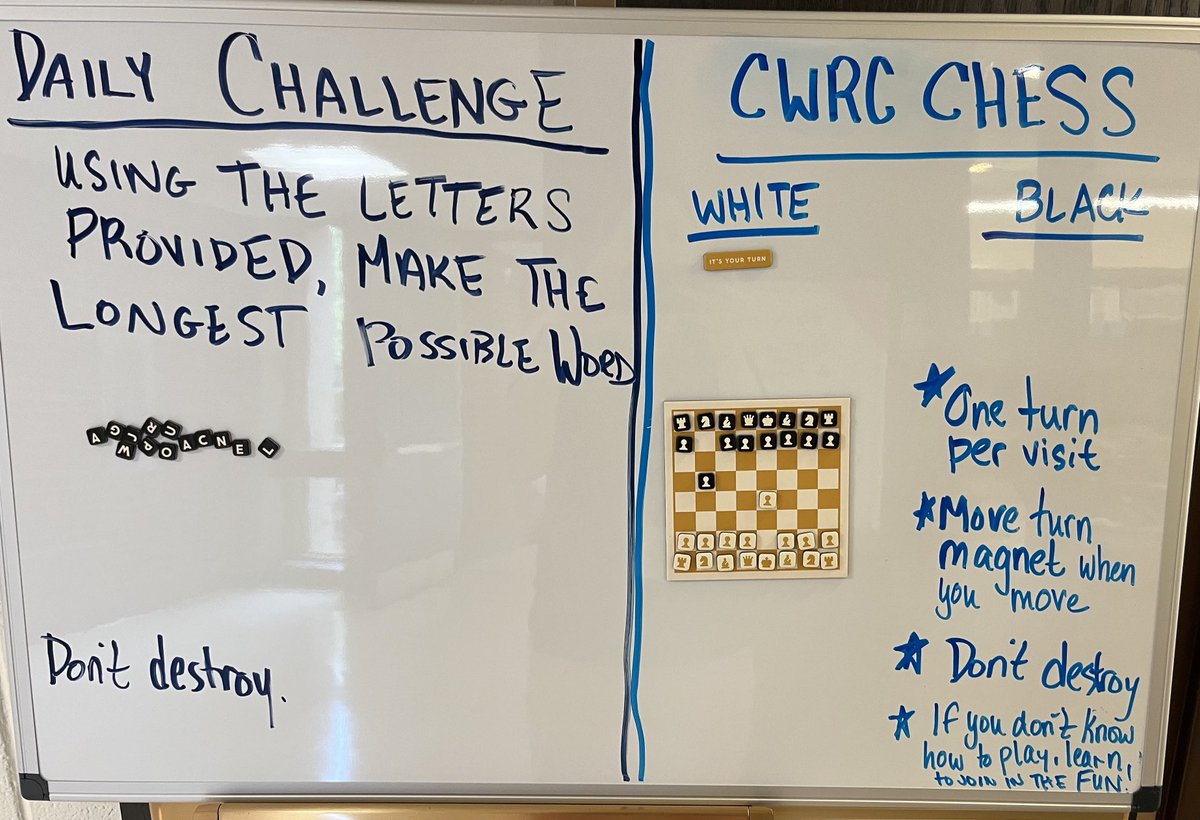 DAILY CHALLENGE
USING THE LETTERS
PROVIDED, MAKE THE
LONGEST POSSIBLE WORD
A C N E L
Don't destroy.
CWRC CHESS
WHITE BLACK
IT'S YOUR TURN
One turn
per visit
Move turn
magnet when
you move
Don't destroy
If you don't know
how to play, learn,
to JOIN IN THE FUN.